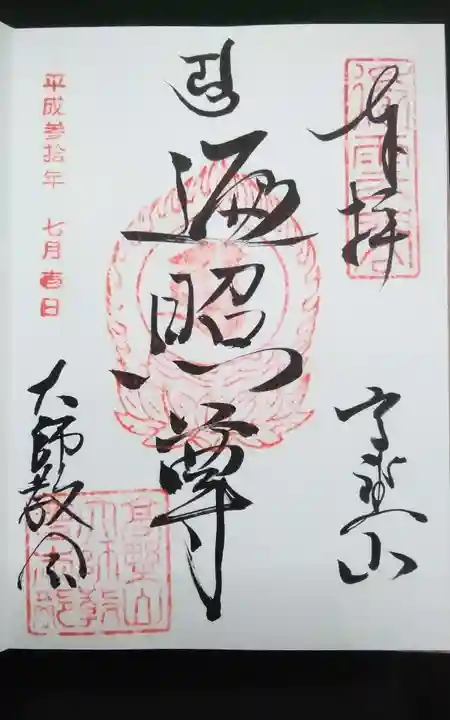 奉拝
高野山
遍照尊
平成参拾年 七月壱日
大師教会